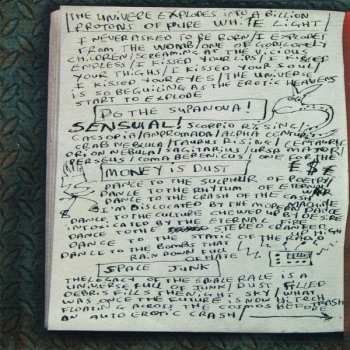 THE UNIVERE EXPLODES INTO A BILLION
PROTONS OF PURE WHITE LIGHT
I NEVER ASKED TO BE BORN/I EXPLODE
FROM THE WOMB/ONE OF GODS LONELY
CHILDREN/SCREAMING AT THE VICIOUS
ENDLESS/I KISSED YOUR LIPS/I KISSED
YOUR THIGHS/I KISSED YOUR SOUL/
I KISSED YOUR EYES/THE UNIVERSE
IS SO BEGUILING AS THE EROTIC HEAVENS
START TO EXPLODE
DIG THE SUPANOVA!
SENSUAL! SCORPIO RISING/
CASSOPIA/ANDROMADA/ALPHA CENTURI/
CRAB NEBULA/TAURUS RISING/CENTAURUS
ORION NEBULA/SAGITARIUS/URSA MAJOR/
PERSEUS/COMA BERENICUS/ONE FOR THE
MONEY IS DUST
DANCE TO THE SULPHUR OF POETRY
DANCE TO THE RHYTHM OF ETERNITY
DANCE TO THE CRASH OF THE CASH
I'M DISLOCATED BY THE MODERN MACHINE
DANCE TO THE CULTURE CHEWED UP BY
INTOXICATED BY THE ETERNAL FIRE
DANCE TO THE STEREO
DANCE TO THE STATIC OF THE RADIO
DANCE TO THE BOMBS THAT
RAIN DOWN FIRE
OF HATE
SPACE JUNK
THE LEGACY OF THE HUMAN RACE IS A
UNIVERSE FULL OF JUNK/DUST FILLED
DEBRIS FILLS THE NIGHT SKY/WHAT
WAS ONCE THE FUTURE IS NOW HI TECH TRASH
FLOATING ACROSS THE COSMOS BEFORE
AN AUTO EROTIC CRASH